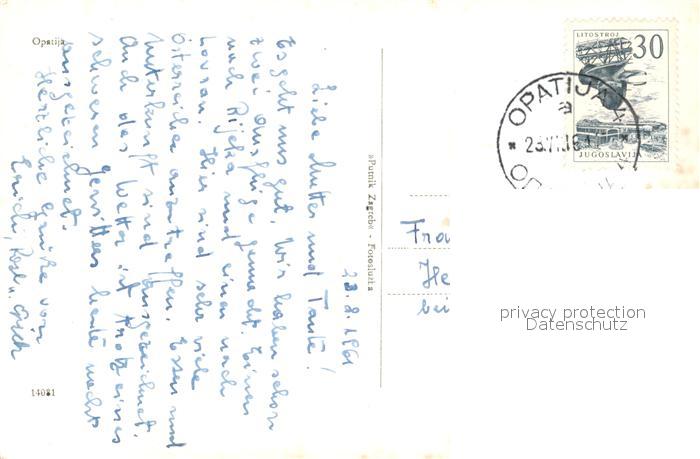 Opatija
23.8.1961
Liebe Mutter und Tante!
Es geht uns gut, wir haben schon
zwei Ausflüge gemacht. Einen
nach Rijeka und einen nach
Lovran. Hier sind sehr viele
Österreicher anzutreffen. Essen und
Unterkunft sind ausgezeichnet.
Auch das Wetter ist trotz eines
schweren Gewitters heute nachts
ausgezeichnet.
Herzliche Grüße von
Erich, u.
14081
»Putnik Zagreb« - Fotoslužba
LITOSTROJ
30
JUGOSLAVIJA
OPATIJA
Fra
He
bei
privacy protection
Datenschutz